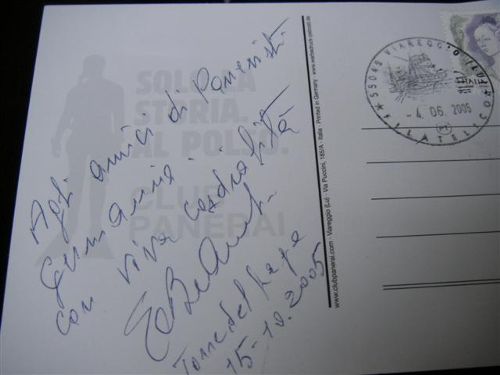 SOLO LA
STORIA.
AL POLSO.
CLUB
PANERAI
Agli amici di Paneristi
Germania.
con viva cordialità
Torre del Lago
15-10.2005
www.clubpanerai.com - Viareggio (Lu) - Via Puccini, 185/A - Italia - Printed in Germany -
55049 VIAREGGIO (LU)
- 4. 06. 2005
ITALIA